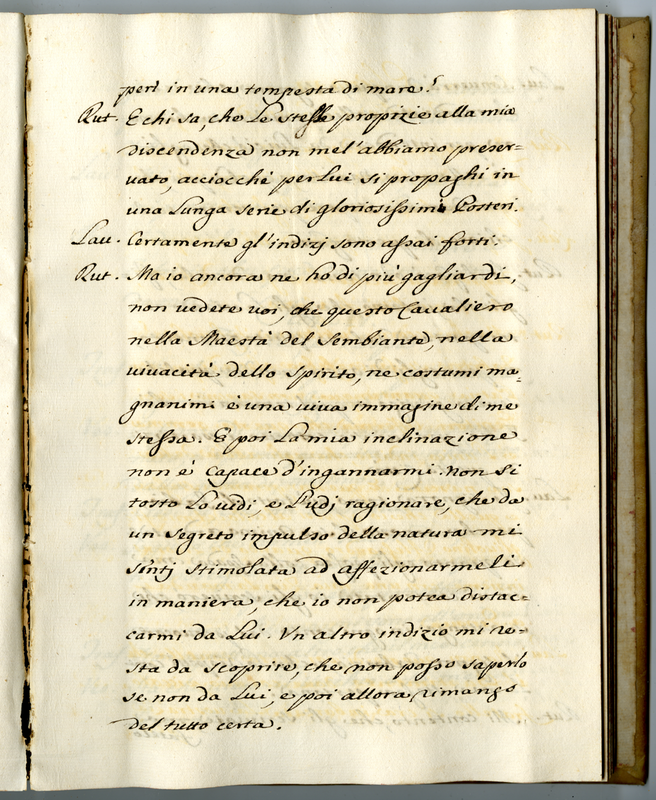 perì in una tempesta di mare?
Rut. E chi sa, che Le stelle propizie alla mia
discendenza non mel'abbiamo preser=
vato, acciocché per Lui si propaghi in
una Lunga serie di gloriosissimi Posteri.
Lau. Certamente gl'indizj sono assai forti.
Rut. Ma io ancora ne ho di più gagliardi,
non vedete voi, che questo Cavaliero
nella Maestà del Sembiante, nella
vivacità dello spirito, ne costumi ma=
gnanimi è una viva immagine di me
stessa. E poi La mia inclinazione
non è capace d'ingannarmi. Non si
tosto Lo vidi, e L'udj ragionare, che da
un segreto impulso della natura mi
sintj stimolata ad affezionarmeli
in maniera, che io non potea distac=
carmi da Lui. Vn altro indizio mi re=
sta da scoprire, che non posso saperlo
se non da Lui, e poi allora rimango
del tutto certa.